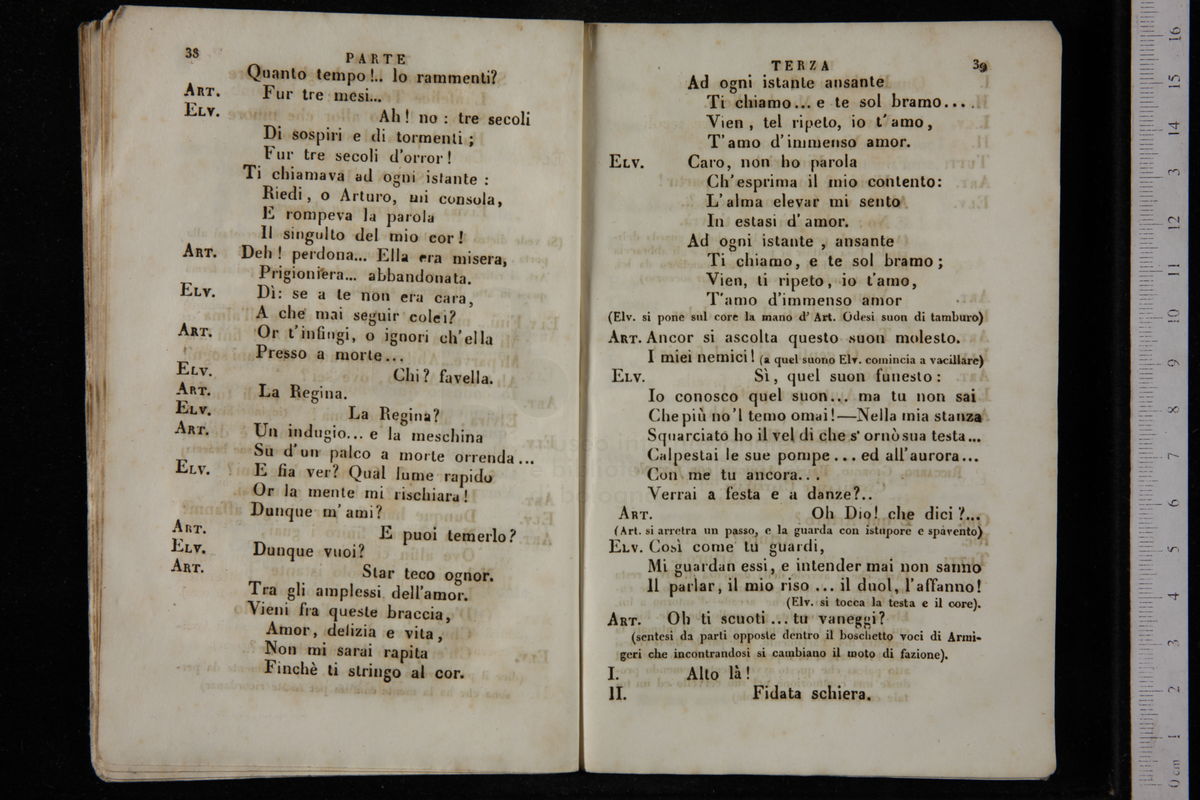 38
PARTE
Quanto tempo!.. lo rammenti?
ART. Fur tre mesi...
ELV. Ah! no: tre secoli
Di sospiri e di tormenti;
Fur tre secoli d'orror!
Ti chiamava ad ogni istante:
Riedi, o Arturo, mi consola,
E rompeva la parola
Il singulto del mio cor!
ART. Deh! perdona... Ella era misera,
Prigioniera... abbandonata.
ELV. Dì: se a te non era cara,
A che mai seguir colei?
ART. Or t'infingi, o ignori ch'ella
Presso a morte...
ELV. Chi? favella.
ART. La Regina.
ELV. La Regina?
ART. Un indugio... e la meschina
Su d'un palco a morte orrenda...
ELV. E fia ver? Qual lume rapido
Or la mente mi rischiara!
Dunque m'ami?
ART. E puoi temerlo?
ELV. Dunque vuoi?
ART. Star teco ognor.
Tra gli amplessi dell'amor.
Vieni fra queste braccia,
Amor, delizia e vita,
Non mi sarai rapita
Finchè ti stringo al cor.
TERZA
39
Ad ogni istante ansante
Ti chiamo... e te sol bramo....
Vien, tel ripeto, io t'amo,
T'amo d'immenso amor.
ELV. Caro, non ho parola
Ch'esprima il mio contento:
L'alma elevar mi sento
In estasi d'amor.
Ad ogni istante, ansante
Ti chiamo, e te sol bramo;
Vien, ti ripeto, io t'amo,
T'amo d'immenso amor
(Elv. si pone sul core la mano d' Art. Odesi suon di tamburo)
ART. Ancor si ascolta questo suon molesto.
I miei nemici! (a quel suono Elv. comincia a vacillare)
ELV. Sì, quel suon funesto:
Io conosco quel suon... ma tu non sai
Che più no'l temo omai!—Nella mia stanza
Squarciato ho il vel di che s'ornò sua testa...
Calpestai le sue pompe... ed all'aurora...
Con me tu ancora...
Verrai a festa e a danze?..
ART. Oh Dio! che dici?...
(Art. si arretra un passo, e la guarda con istupore e spavento)
ELV. Così come tu guardi,
Mi guardan essi, e intender mai non sanno
Il parlar, il mio riso... il duol, l'affanno!
(Elv. si tocca la testa e il core).
ART. Oh ti scuoti... tu vaneggi?
(sentesi da parti opposte dentro il boschetto voci di Armi-
geri che incontrandosi si cambiano il moto di fazione).
I. Alto là!
II. Fidata schiera.
0 cm 1 2 3 4 5 6 7 8 9 10 11 12 13 14 15 16